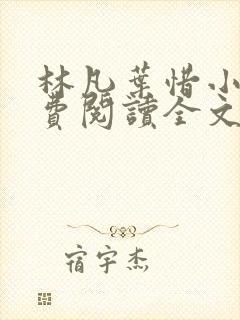 林凡葉惜小
費閱讀全文
宿宇杰